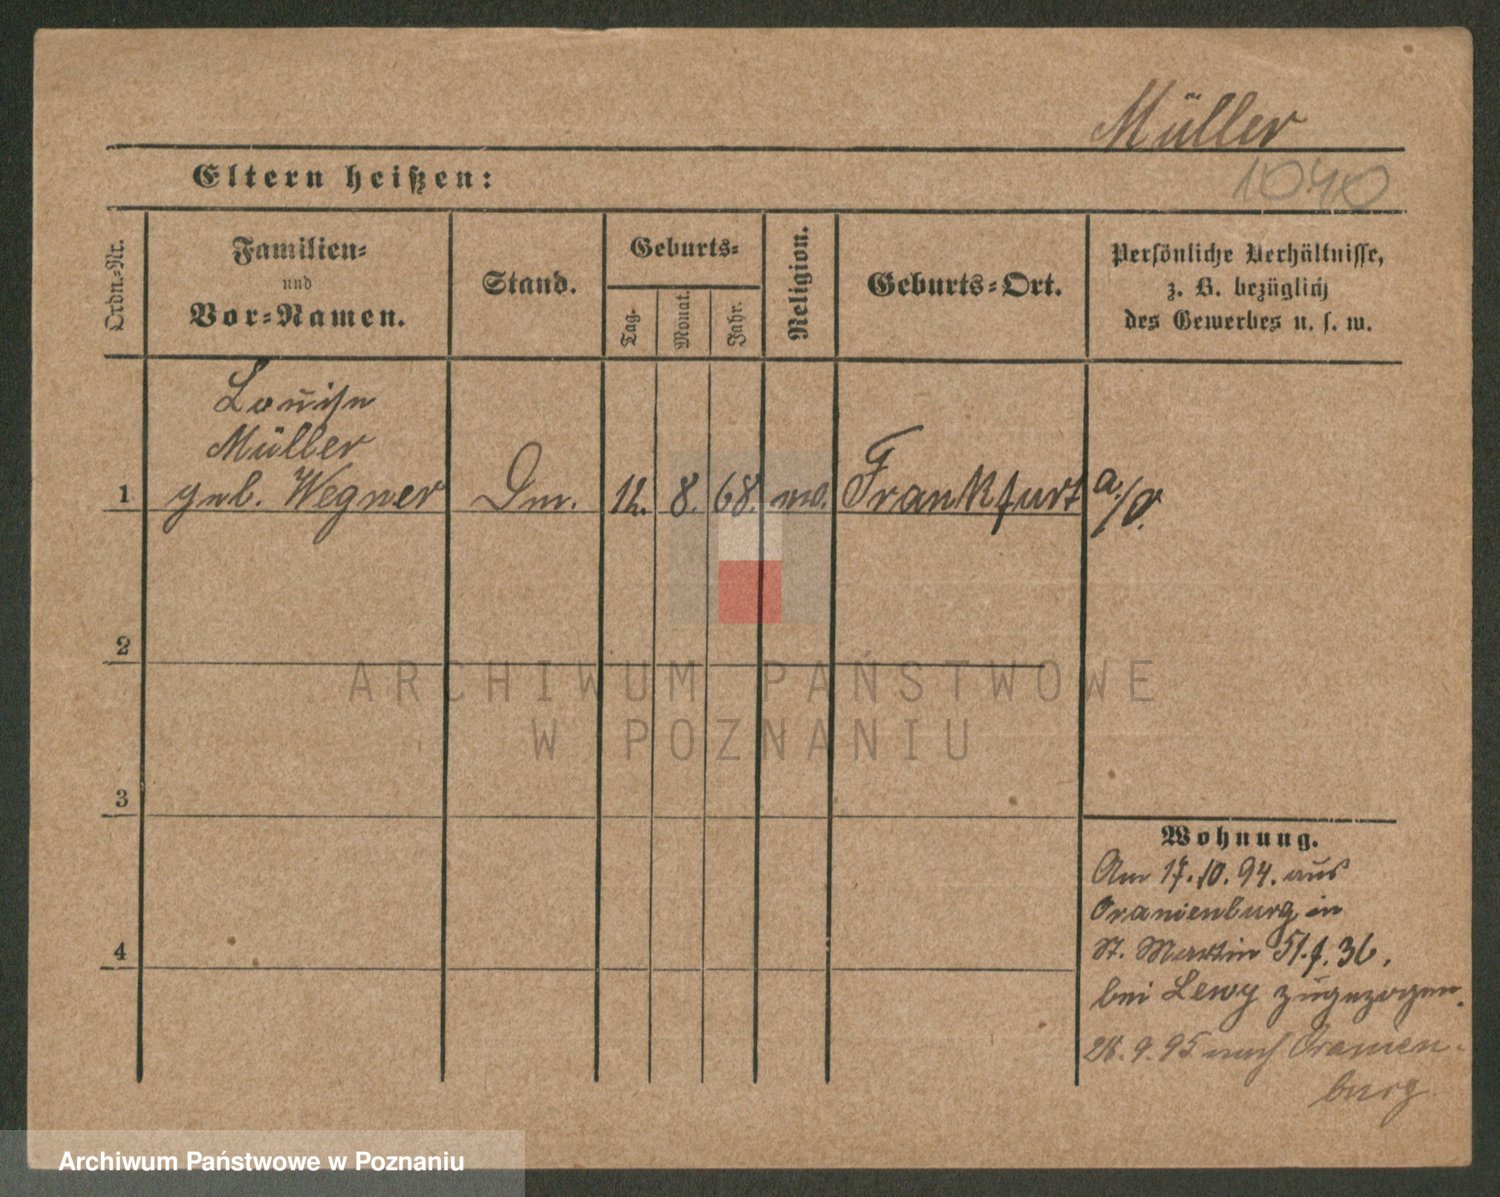 Müller
1040
Eltern heißen:
Ordn.-Nr.
Familien-
und
Vor-Namen.
Stand.
Geburts-
Tag.
Monat.
Jahr.
Religion.
Geburts-Ort.
Persönliche Verhältnisse,
z. B. bezüglich
des Gewerbes u. s. w.
Louise
Müller
1 geb. Wegner 12. 8. 68. Frankfurt a/O.
2
3
4
Wohnung.
Am 17.10.94. aus
Oranienburg in
St. Martin 51. 36.
bei Lewy zugezogen.
28.9.95 nach Oranien-
burg.
ARCHIWUM PAŃSTWOWE
W POZNANIU
Archiwum Państwowe w Poznaniu